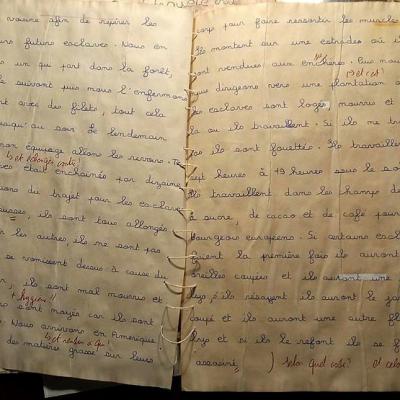 savane afin de repérer les
urs futurs esclaves. Nous en
un qui part dans la forêt,
suivant puis nous l'enfermons
avec des filets, tout cela
jusqu'au soir le lendemain
mon équipage allons les revoirs.
et échangés contre
étai enchainés par dizaine
ons du trajet pour les esclaves
, ils sont tous allongés
les autres, ils ne sont pas
se vomissent dessus à cause du
, ils sont mal nourris et
+ hygiène !!
sont mayés car ils sont
. Nous arrivons en Amérique
des matières grasse sur leurs
corp pour faire ressortir les muscles
Ils montent sur une estrades où il
sont vendues aux enchères. Puis nous
dirigeons vers une plantation
les esclaves sont logés nourris et
là ou ils travaillent. Si ils ne tra
pas ils sont fouettés. Ils travaill
sept heures à 19 heures sous le so
Ils travaillent dans les champs de
à sucre, de cacao et de café pour
bourgeois européens. Si certains escla
la première fois ils auront
oreilles coupées et ils auront une
lys, si ils réssayent ils auront le ja
coupé et ils auront une autre fl
lys et si ils le refont ils se f
assassiné
) selon quel code ?
et cela